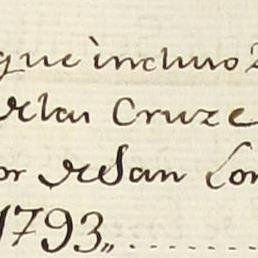 que incluio
de las Cruze
or de San Lor
1793,,..........